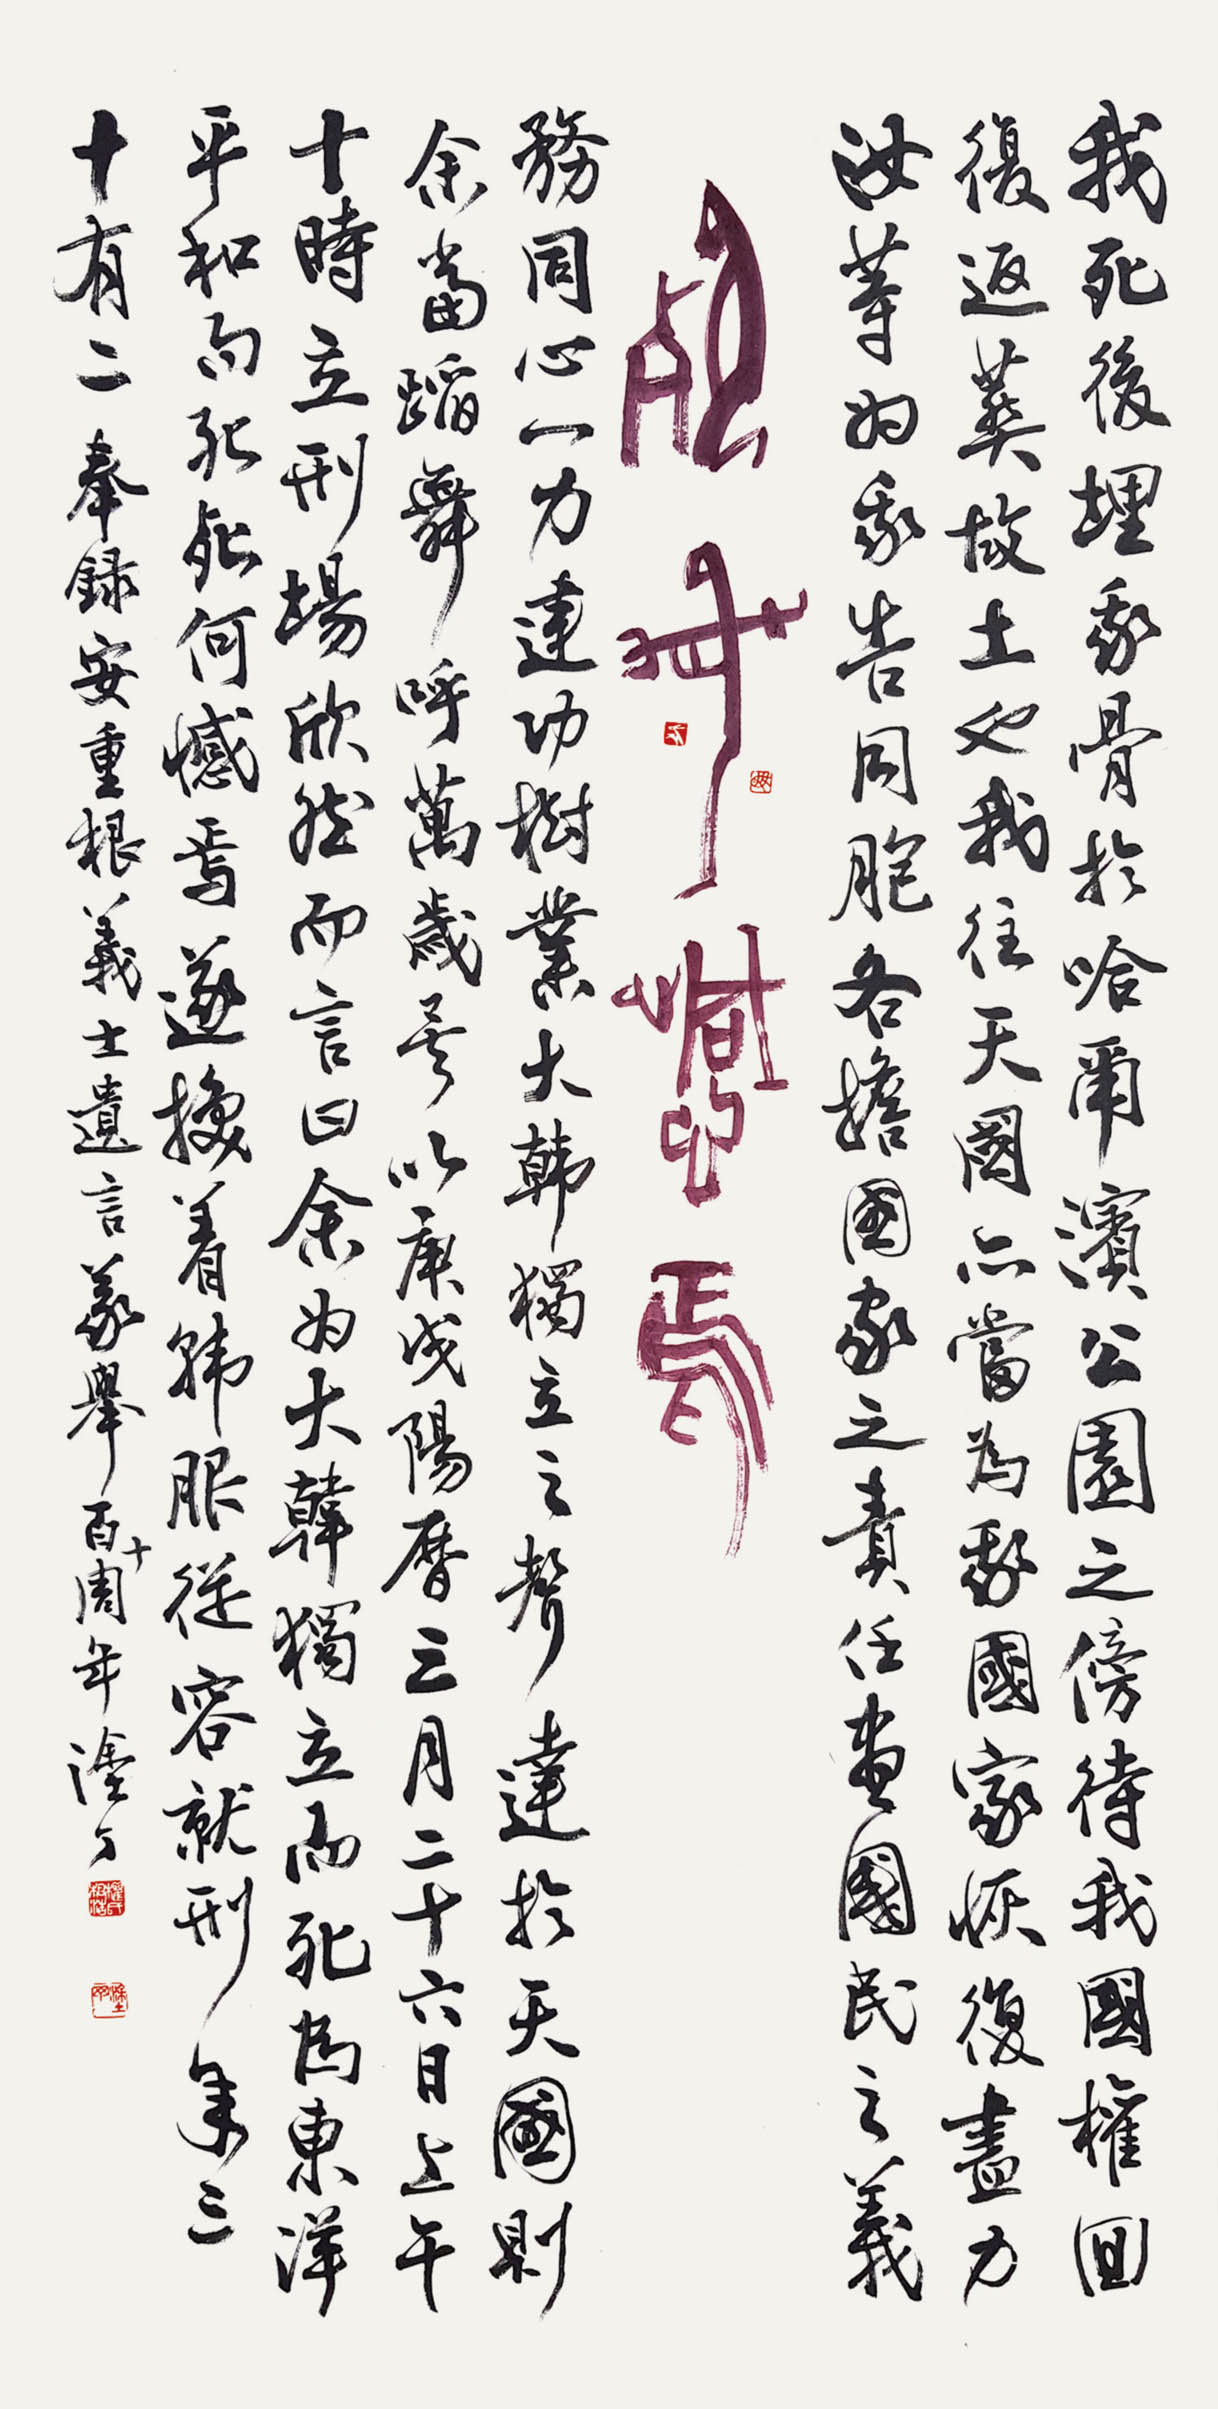 我死後埋我骨於哈爾濱公園之傍待我國權回
復返葬故土也我往天國亦當為我國家恢復盡力
汝等为我告同胞各擔國家之責任盡國民之義
死何憾焉
務同心一力達功樹業大韓獨立之聲達於天國則
余當蹈舞呼萬歲矣以庚戌陽曆三月二十六日上午
十時立刑場欣然而言曰余为大韓獨立而死為東洋
平和而死死何憾焉遂換着韓服從容就刑年三
十有二 奉錄安重根義士遺言義舉百十周年塗丁